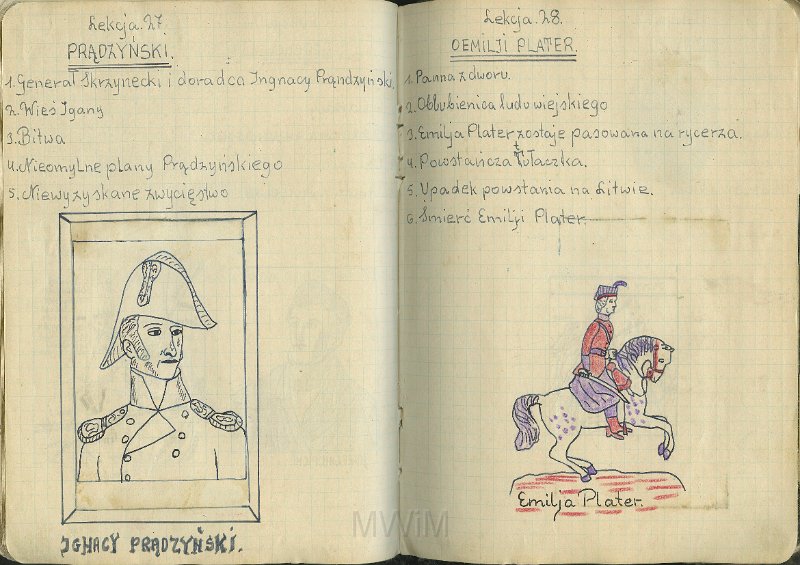 Lekcja.27
PRĄDZYŃSKI.
1. Generał Skrzynecki i doradca Ingnacy Prąndzyński.
2. Wieś Igany
3. Bitwa
4. Nieomylne plany Prądzyńskiego
5. Niewyzyskane zwycięstwo
IGNACY PRĄDZYŃSKI.
Lekcja.28.
O EMILJI PLATER.
1. Panna z dworu.
2. Oblubienica ludu wiejskiego
3. Emilja Plater zostaje pasowana na rycerza.
4. Powstańcza tułaczka.
5. Upadek powstania na Litwie.
6. Śmierć Emilji Plater.
Emilja Plater.
MWiM